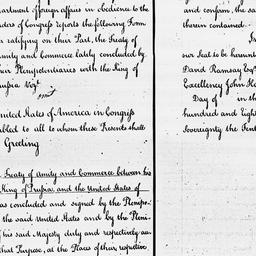 partment of foreign affairs in obedience to the
ders of Congress reports the following Form
r ratifying on their Part, the Treaty of
mity and Commerce lately concluded by
heir Plenipotentiaries with the King of
russia Viz.t
nited States of America in Congress
mbled to all to whom these Presents shall
Greeting
Treaty of Amity and Commerce between his
King of Prussia and the United States of
as concluded and signed by the Plenipo-
the said United States and by the Pleni-
f his said Majesty duly and respectively au-
that Purpose, at the Places of their respective
and confirm, the sa
therein contained.
our Seal to be hereunto
David Ramsay Esq.r
Excellency John Ha
Day of in th
hundred and Eigh
Sovereignty the Tent